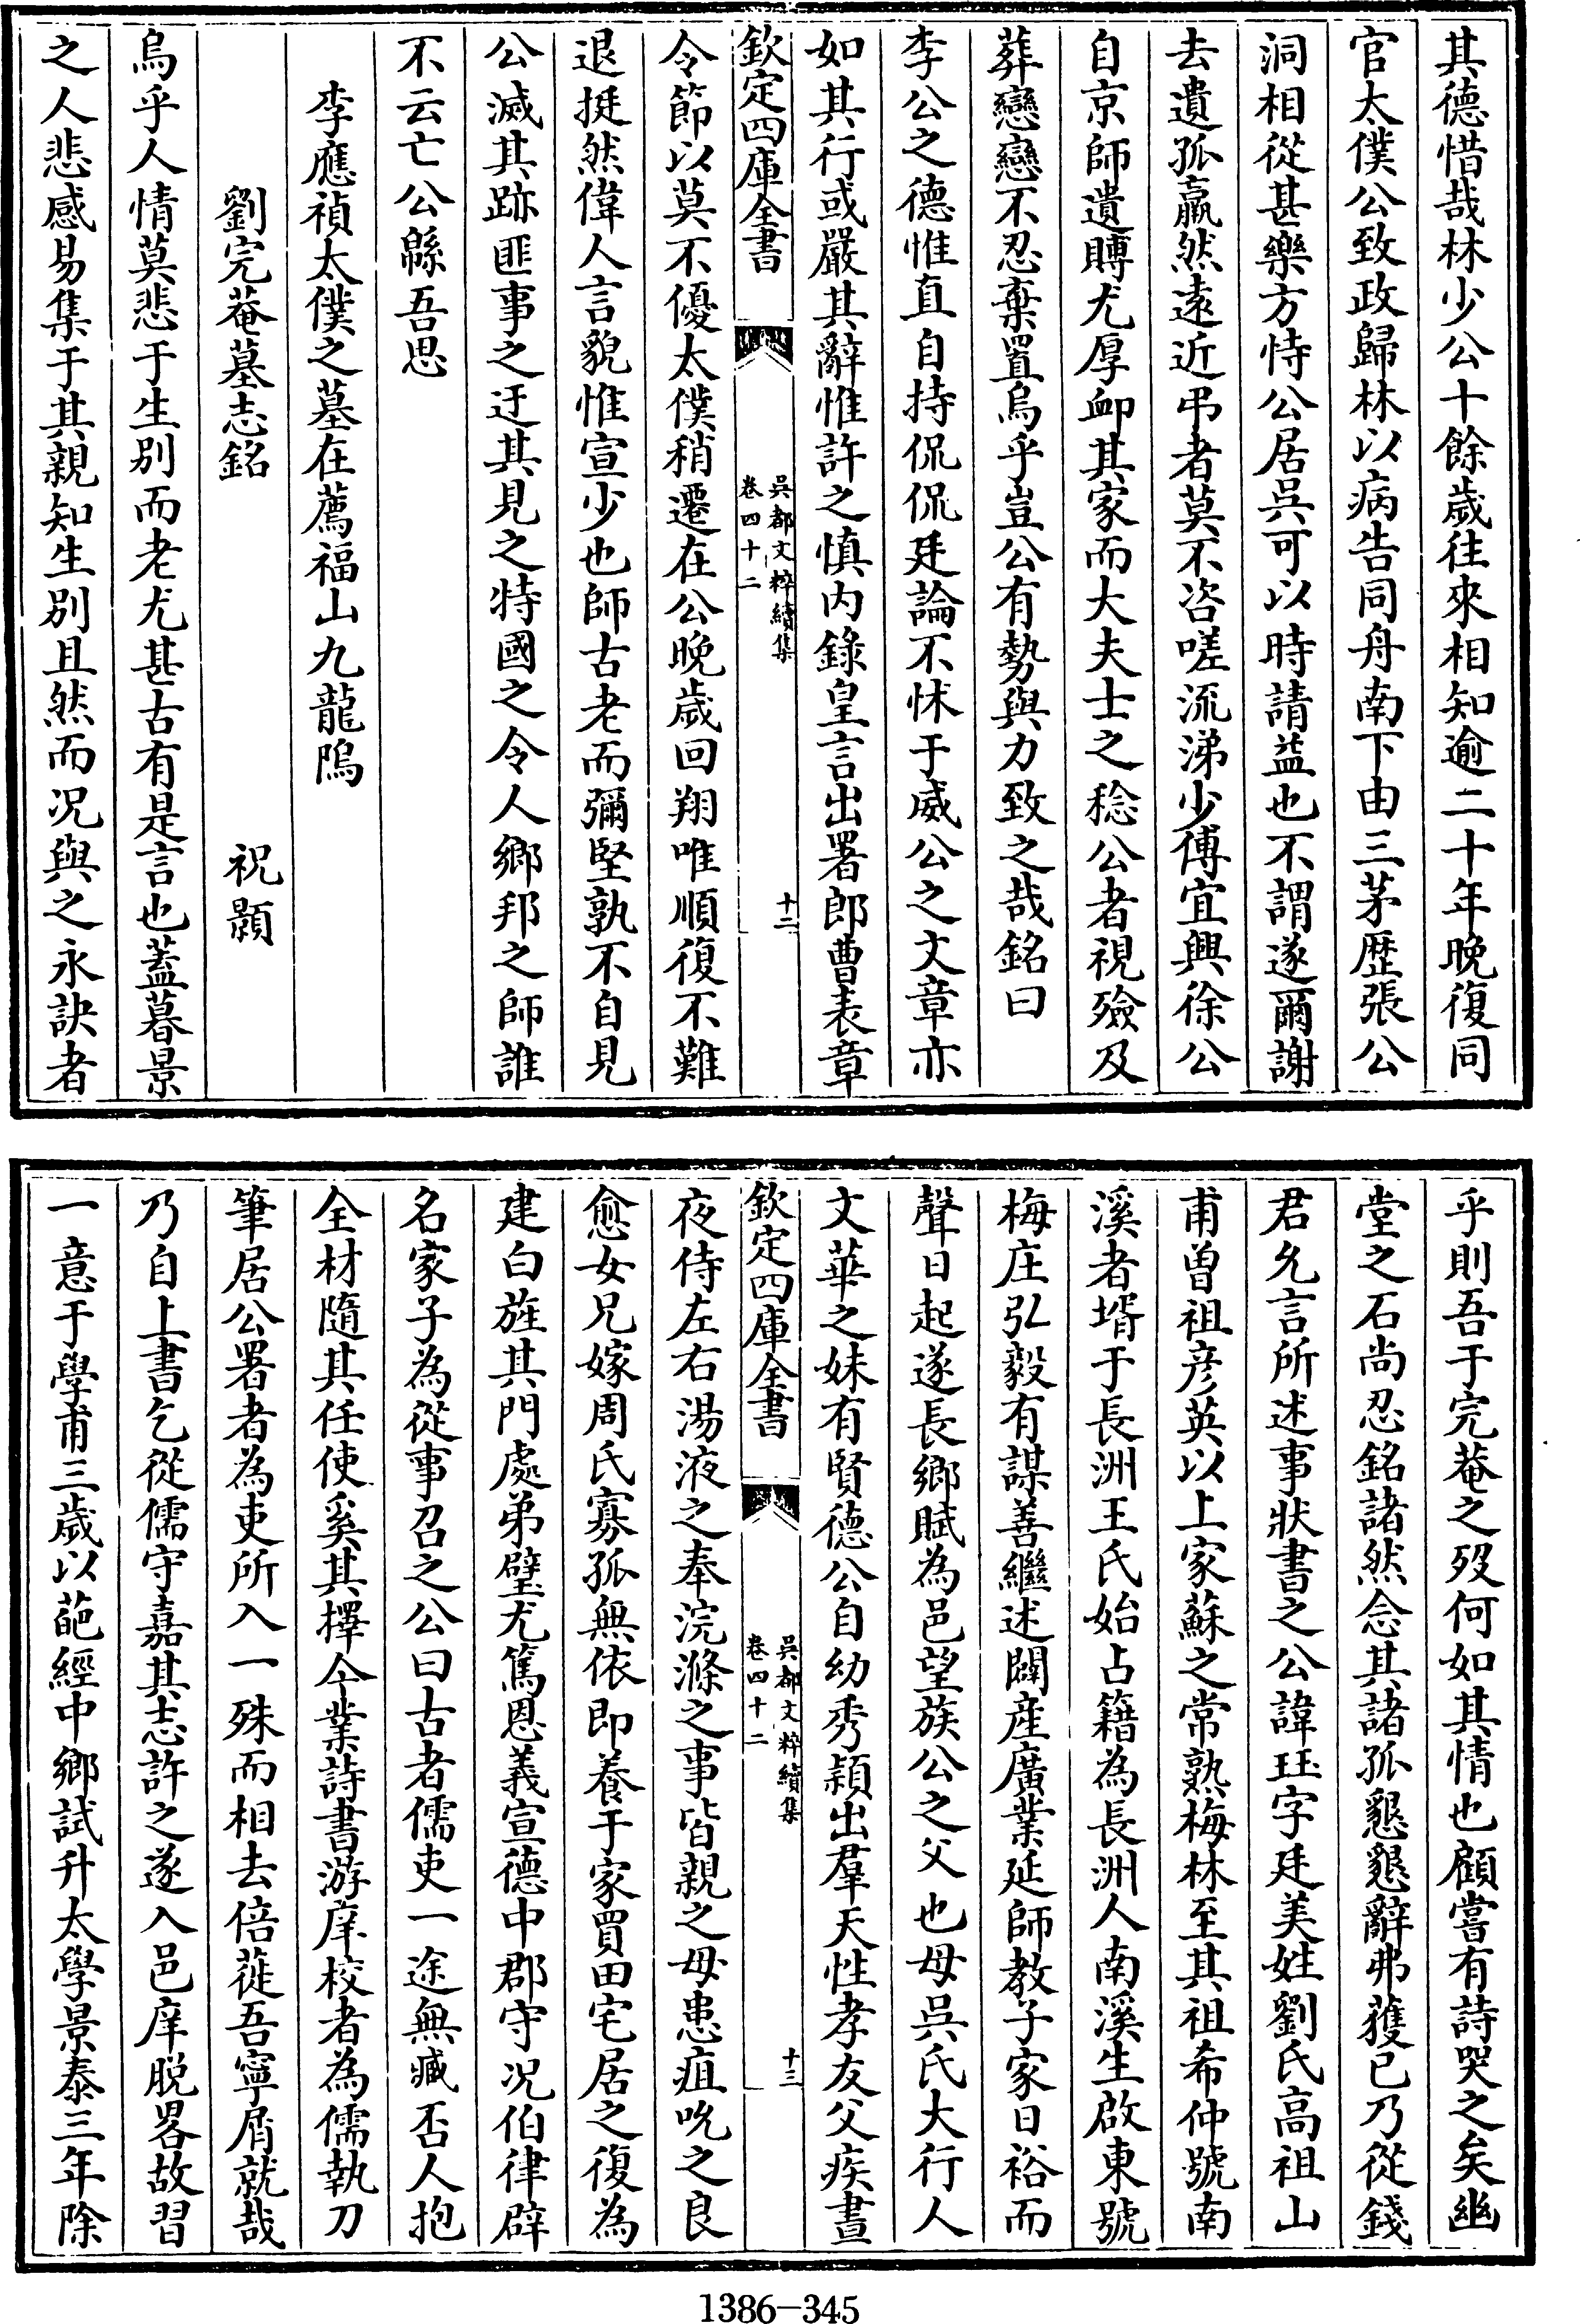 其德惜哉林少公十餘歲往來相知逾二十年晚復同
官太僕公致政歸林以病告同舟南下由三茅歷張公
洞相從甚樂方恃公居吳可以時請益也不謂遂爾謝
去遺孤羸然遠近弔者莫不咨嗟流涕少傅宜興徐公
自京師遺賻尤厚卹其家而大夫士之稔公者視殮及
葬戀戀不忍棄置烏乎豈公有勢與力致之哉銘曰
李公之德惟直自持侃侃廷論不怵于威公之文章亦
如其行或嚴其辭惟許之慎內錄皇言出署郎曹表章
欽定四庫全書
吳都文粹續集
卷四十二
十二
令節以莫不優太僕稍遷在公晚歲回翔唯順復不難
退挺然偉人言貌惟宣少也師古老而彌堅孰不自見
公滅其跡匪事之迂其見之特國之令人鄉邦之師誰
不云亡公繇吾思
李應禎太僕之墓在薦福山九龍塢
劉完菴墓志銘 祝顥
烏乎人情莫悲于生別而老尤甚古有是言也蓋暮景
之人悲感易集于其親知生別且然而况與之永訣者
乎則吾于完菴之歿何如其情也顧嘗有詩哭之矣幽
堂之石尚忍銘諸然念其諸孤懇懇辭弗獲已乃從錢
君允言所述事狀書之公諱珏字廷美姓劉氏高祖山
甫曾祖彥英以上家蘇之常熟梅林至其祖希仲號南
溪者壻于長洲王氏始占籍為長洲人南溪生啟東號
梅庄弘毅有謀善繼述闢產廣業延師教子家日裕而
聲日起遂長鄉賦為邑望族公之父也母吳氏大行人
文華之妹有賢德公自幼秀穎出羣天性孝友父疾晝
欽定四庫全書
吳都文粹續集
卷四十二
十三
夜侍左右湯液之奉浣滌之事皆親之母患疽吮之良
愈女兄嫁周氏寡孤無依即養于家買田宅居之復為
建白旌其門處弟璧尤篤恩義宣德中郡守况伯律辟
名家子為從事召之公曰古者儒吏一途無臧否人抱
全材隨其任使奚其擇今業詩書游庠校者為儒執刀
筆居公署者為吏所入一殊而相去倍蓰吾寧屑就哉
乃自上書乞從儒守嘉其志許之遂入邑庠脱畧故習
一意于學甫三歲以葩經中鄉試升太學景泰三年除
1386-345